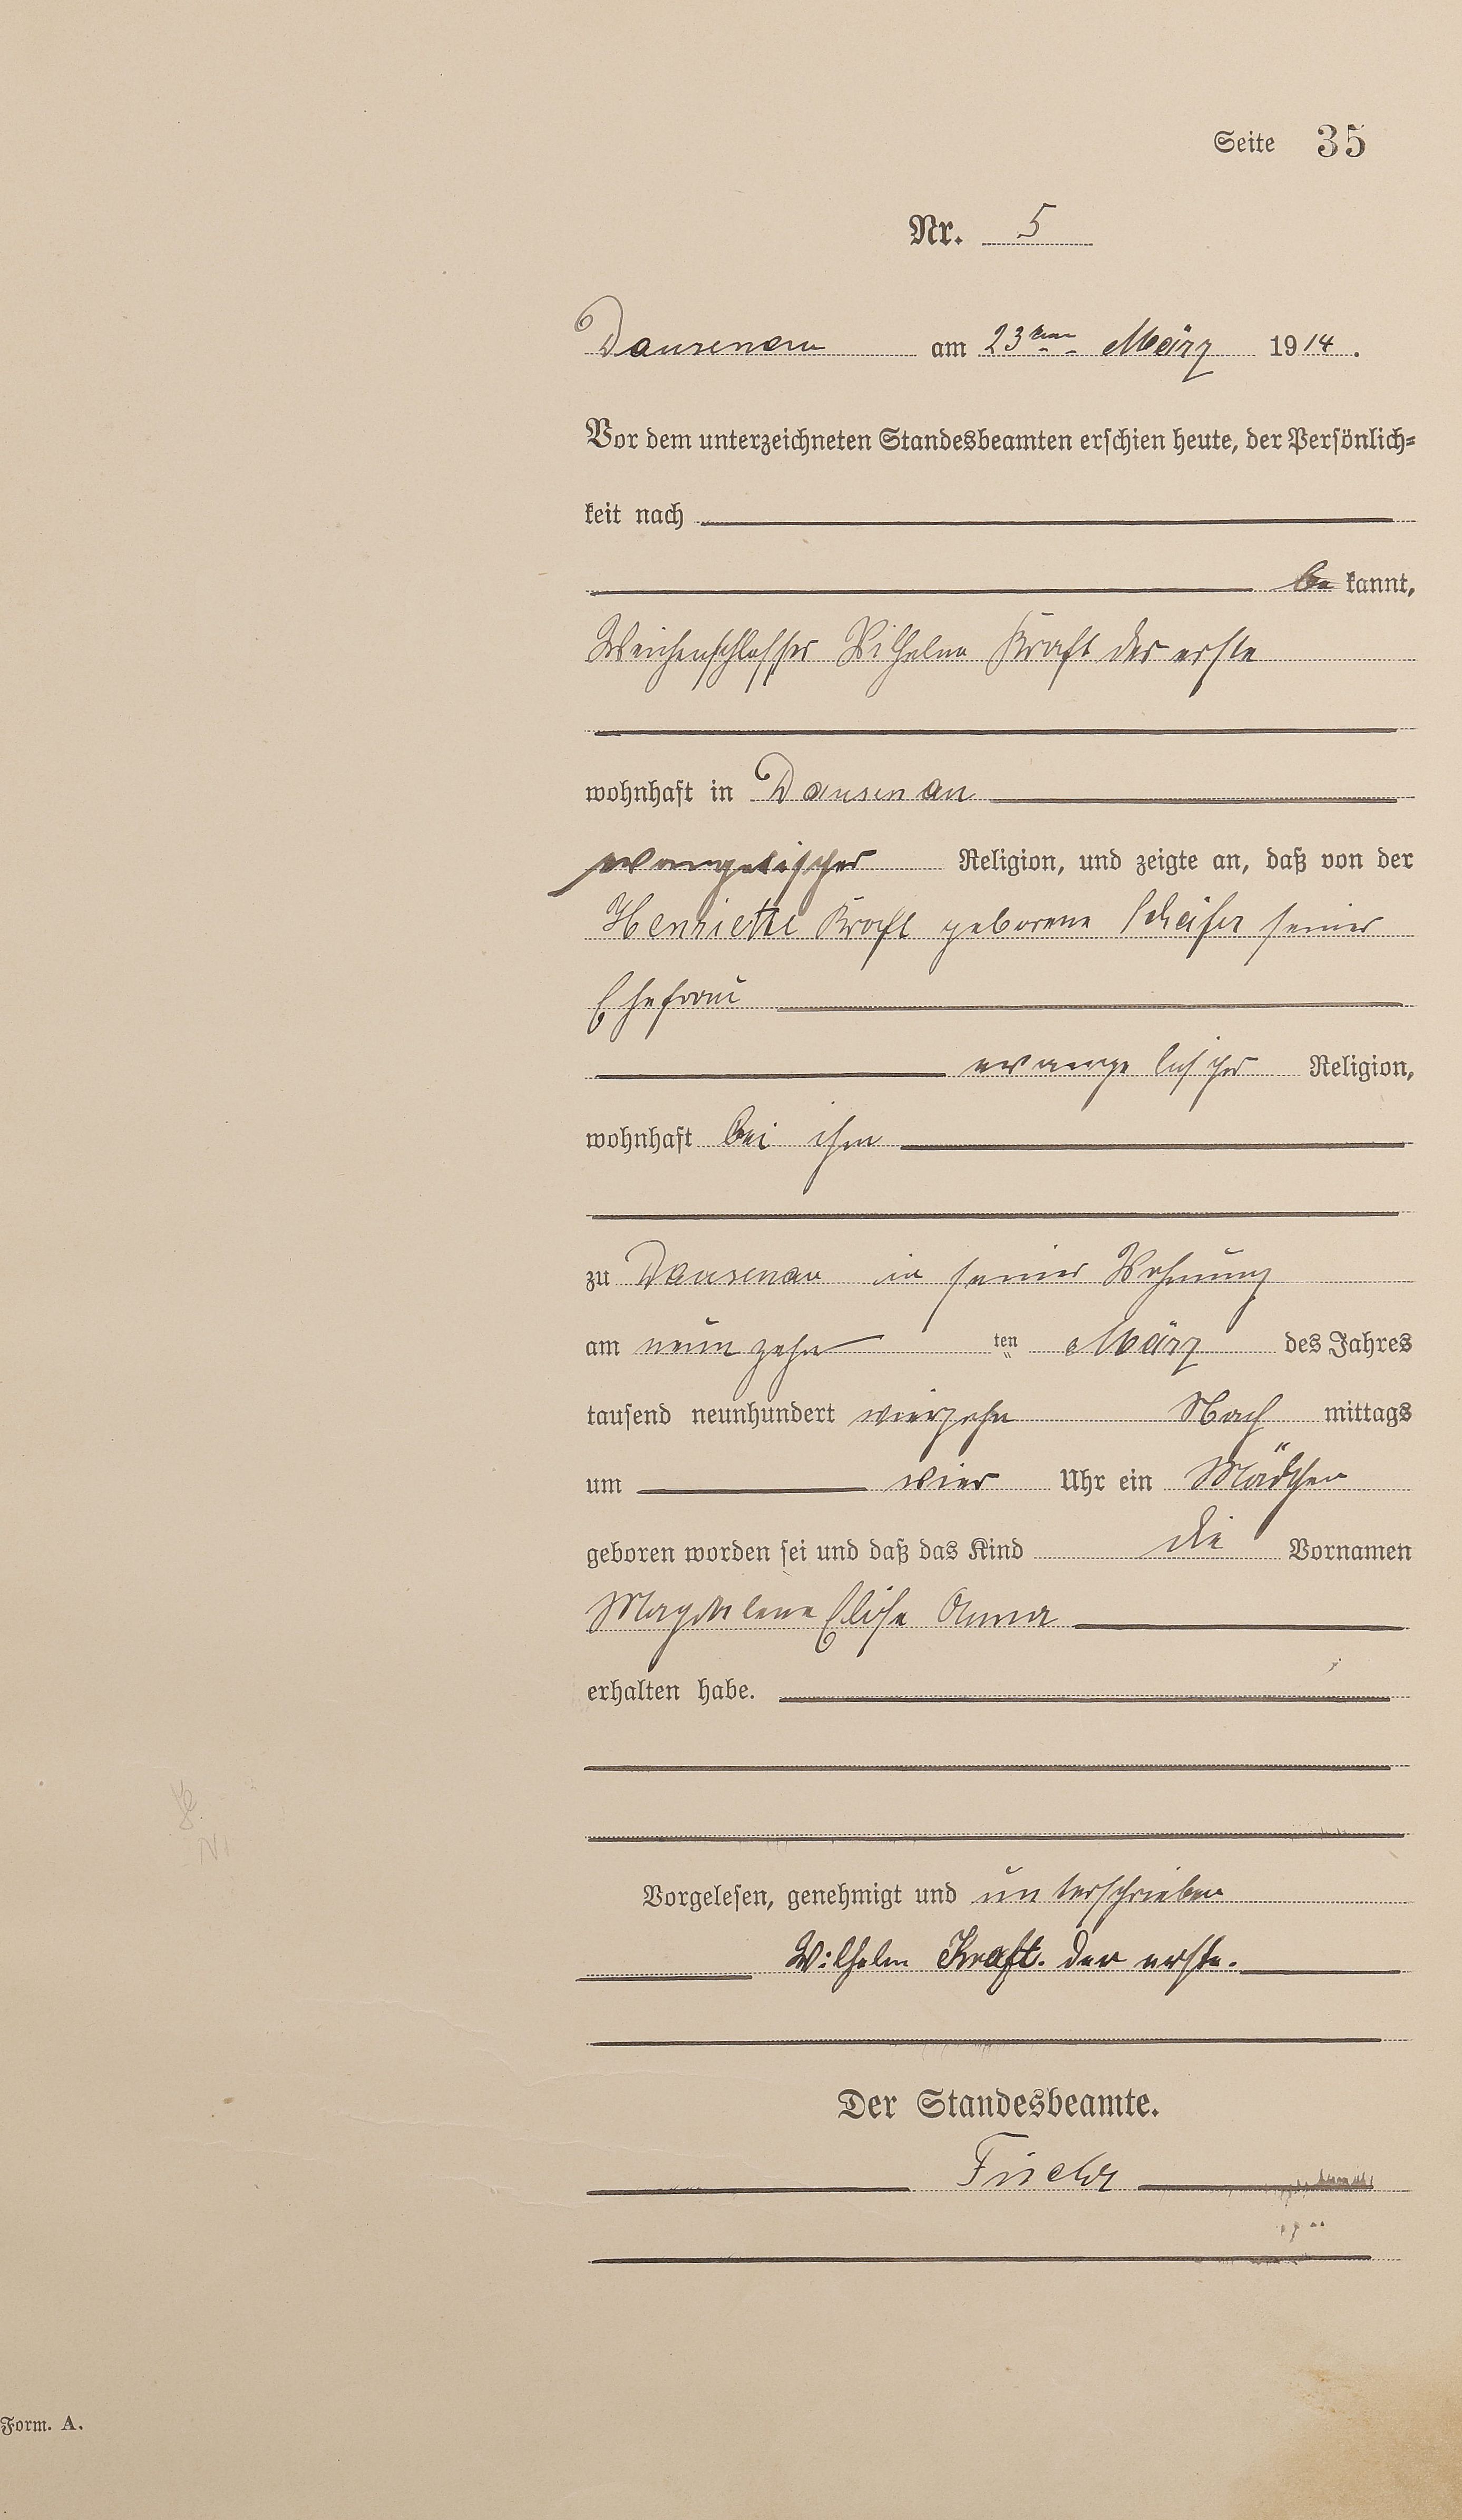 Seite 35
Nr. 5
Dausenau am 23ten März 1914.
Vor dem unterzeichneten Standesbeamten erschien heute, der Persönlich-
keit nach
be kannt,
Weichenschlosser Wilhelm Kraft der erste
wohnhaft in Dausenau
evangelischer Religion, und zeigte an, daß von der
Henriette Kraft geborene seiner
Ehefrau
evangelischer Religion,
wohnhaft bei ihm
zu Dausenau in seiner Wohnung
am neunzehn ten März des Jahres
tausend neunhundert vierzehn Nach mittags
um vier Uhr ein Mädchen
geboren worden sei und daß das Kind die Vornamen
Magdalena Elise Anna
erhalten habe.
Vorgelesen, genehmigt und unterschrieben
Wilhelm Kraft. der erste.
Der Standesbeamte.
Form. A.